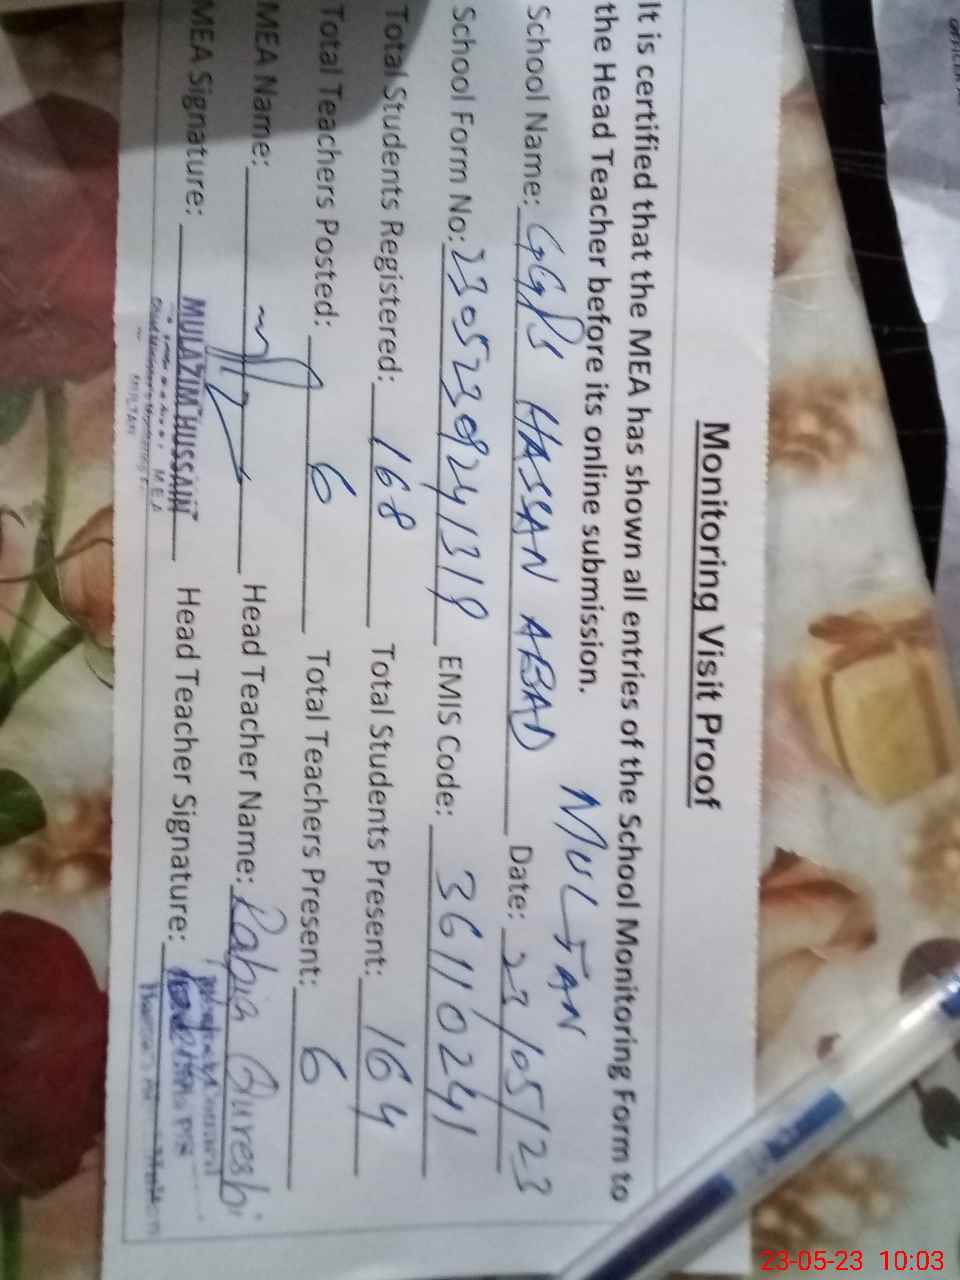 Monitoring Visit Proof
It is certified that the MEA has shown all entries of the School Monitoring Form to
the Head Teacher before its online submission.
MULTAN
School Name: GGPS HASSAN ABAD Date: 23/05/23
School Form No: EMIS Code: 36110241
Total Students Registered: 168 Total Students Present: 164
Total Teachers Posted: 6 Total Teachers Present: 6
MEA Name: Head Teacher Name: Rabia Qureshi
MEA Signature: MULAZIM HUSSAIN Head Teacher Signature:
MEA
MULTAN
23-05-23 10:03